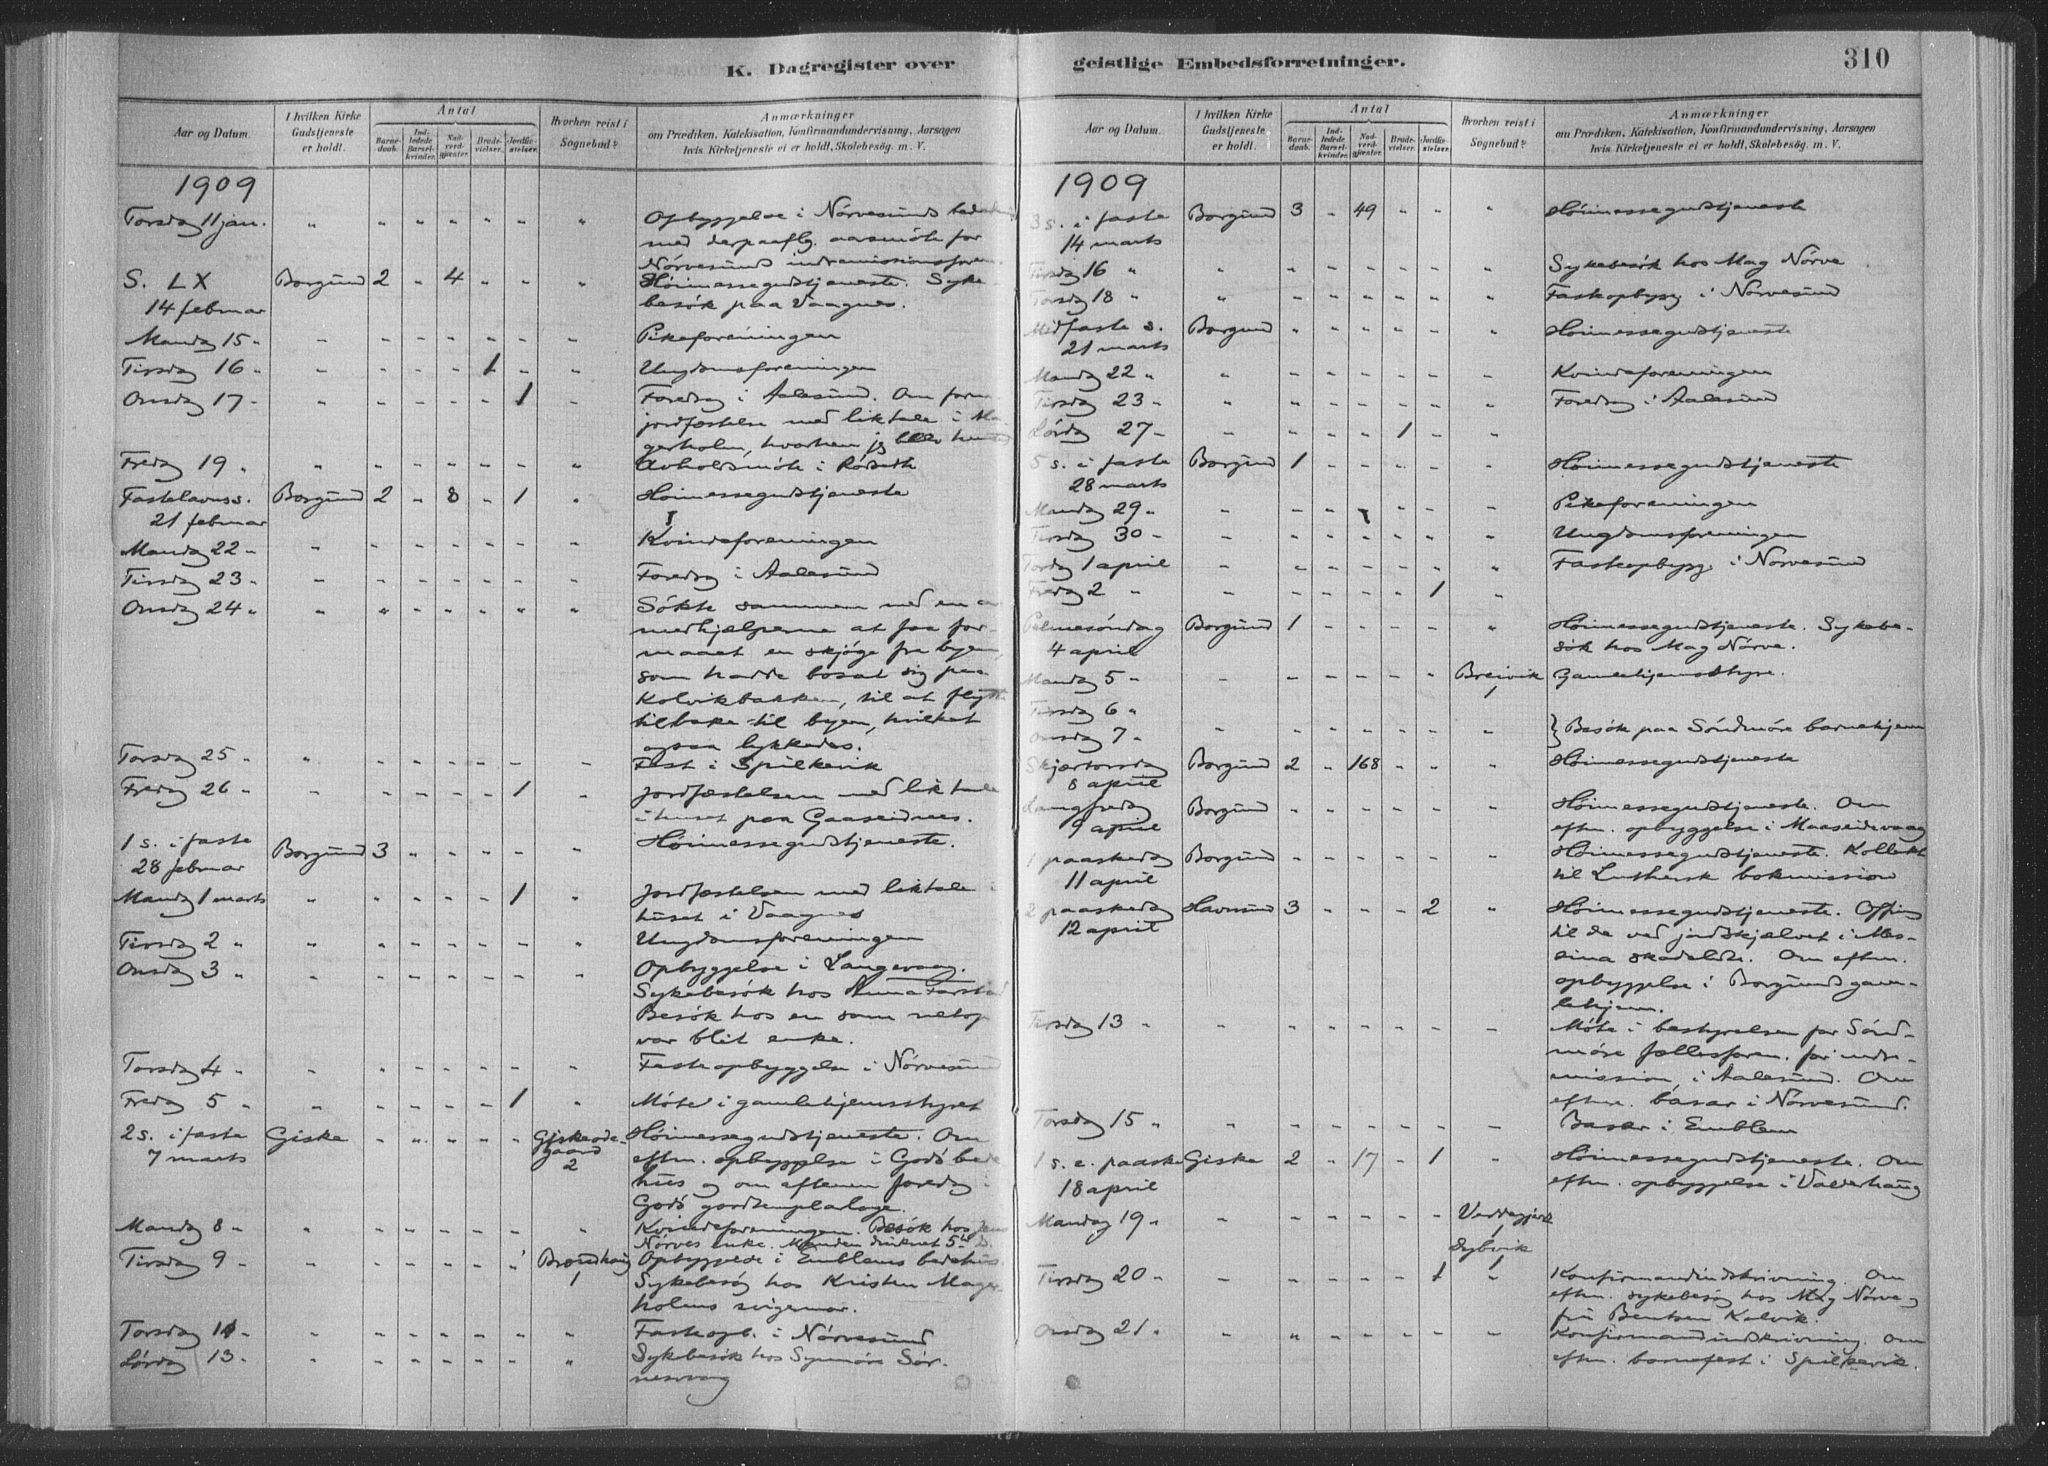 K. Dagregister over geistlige Embedsforretninger.
310
Aar og Datum.
I hvilken Kirke Gudstjeneste er holdt.
Antal
Barnedaab.
Indledede Barselkvinder.
Nadverdgjæster
Brudevielser.
Jordfæstelser.
Hvorhen reist i Sognebud?
Anmærkninger
om Prædiken, Katekisation, Konfirmandundervisning, Aarsagen
hvis Kirketjeneste ei er holdt, Skolebesøg. m. V.
1909
Torsdag 11 jan. " " " " " " " Opbyggelse i Nørvesunds
med derpaaflg. aarsmøte for
Nørvesunds indremissionsforen.
S. LX Borgund 2 " 4 " " " Høimessegudstjeneste. Syke-
14 februar besøk paa Vaagnes.
Mandag 15 " " " " " " " " Pikeforeningen
Tirsdag 16 " " " " " 1 " " Ungdomsforeningen
Onsdag 17 " " " " " " 1 " Foredrag i Aalesund. Om form.
jordfæstelse med liktale i Ma-
gerholm, hvorhen jeg blev hentet
Fredag 19 " " " " " " " " Avholdsmøte i Rødsæth
Fastelavnss. Borgund 2 " 8 " 1 " Høimessegudstjeneste
21 februar
Mandag 22 " " " " " " " " Kvindeforeningen
Tirsdag 23 " " " " " " " " Foredrag i Aalesund
Onsdag 24 " " " " " " " " Søkte sammen med en av
medhjælperne at faa for-
maaet en skjøge fra byen,
som hadde bosat sig paa
Kolvikbakken, til at flytte
tilbake til byen, hvilket
ogsaa lykkedes.
Torsdag 25 " " " " " " " " Fest i Spilkevik
Fredag 26 " " " " " " 1 " Jordfæstelsen med liktale
i huset paa Gaaseidnes.
1 s. i faste Borgund 3 " " " " " Høimessegudstjeneste.
28 februar
Mandag 1 marts " " " " " 1 " Jordfæstelsen med liktale i
huset i Vaagnes
Tirsdag 2 " " " " " " " " Ungdomsforeningen
Onsdag 3 " " " " " " " " Opbyggelse i Langevaag.
Sykebesøk hos Anna Farstad
Besøk hos en som netop
var blit enke.
Torsdag 4 " " " " " " " " Fasteopbyggelse i Nørvesund
Fredag 5 " " " " " " 1 " Møte i gamlehjemsstyret
2 s. i faste Giske " " " " " Giskeøde-
gaard
2 Høimessegudstjeneste. Om
7 marts eftm. opbyggelse i Godø bede
hus og om aftenen foredrag i
Godø godtemplarloge.
Mandag 8 " " " " " " " " Kvindeforeningen. Besøk hos Jens
Nørves enke. Manden druknet 5te d.
Tirsdag 9 " " " " " " " Brøndhaug
1 Opbyggelse i Emblems bedehus
Sykebesøg hos Kristen Mager-
holms svigermor.
Torsdag 11 " " " " " " " " Fasteopb. i Nørvesund
Lørdag 13 " " " " " " " " Sykebesøk hos Synnøve Sør-
nesvaag
Aar og Datum.
I hvilken Kirke Gudstjeneste er holdt.
Antal
Barnedaab.
Indledede Barselkvinder.
Nadverdgjæster
Brudevielser.
Jordfæstelser.
Hvorhen reist i Sognebud?
Anmærkninger
om Prædiken, Katekisation, Konfirmandundervisning, Aarsagen
hvis Kirketjeneste ei er holdt, Skolebesøg. m. V.
1909
3 s. i faste Borgund 3 " 49 " " " Høimessegudstjeneste
14 marts
Tirsdag 16 " " " " " " " " Sykebesøk hos Mag Nørve
Torsdag 18 " " " " " " " " Fasteopbygg i Nørvesund
Midfaste s. Borgund " " " " " " Høimessegudstjeneste
21 marts
Mandag 22 " " " " " " " " Kvindeforeningen
Tirsdag 23 " " " " " " " " Foredrag i Aalesund
Lørdag 27 " " " " " 1 " "
5 s. i faste Borgund 1 " " " " " Høimessegudstjeneste
28 marts
Mandag 29 " " " " " " " " Pikeforeningen
Tirsdag 30 " " " " " " " " Ungdomsforeningen
Torsdag 1 april " " " " " " " Fasteopbygg. i Nørvesund
Fredag 2 " " " " " " 1 "
Palmesøndag Borgund 1 " " " " " Høimessegudstjeneste. Sykebe-
4 april søk hos Mag Nørve.
Mandag 5 " " " " " " " Breivik
1 Gamlehjemsstyre.
Tirsdag 6 "
Onsdag 7 " " " " " " " " } Besøk paa Søndmøre barnehjem
Skjærtorsdag Borgund 2 " 168 " " " Høimessegudstjeneste
8 april
Langfredag Borgund " " " " " " Høimessegudstjeneste. Om
9 april eftm. opbyggelse i Maaseidevaag
1 paaskedag Borgund " " " " " " Høimessegudstjeneste. Kollekt
11 april til Luthersk bokmission
2 paaskedag Havnsund 3 " " " 2 " Høimessegudstjeneste. Offring
12 april til de ved jordskjælvet i Mes-
sina skadelidte. Om eftm.
opbyggelse i Borgunds gam-
lehjem.
Tirsdag 13 " " " " " " " " Møte i bestyrelsen for Sønd-
møre fællesforen. for indre-
mission, i Aalesund. Om
eftm. basar i Nørvesund.
Torsdag 15 " " " " " " " " Basar i Emblem
1 s. e. paaske Giske 2 " 17 " 1 " Høimessegudstjeneste. Om
18 april eftm. opbyggelse i Valderhaug
Mandag 19 " " " " " " "
1
Dybvik
1
Tirsdag 20 " " " " " " 1 " Konfirmandindskrivning. Om
eftm. sykebesøg hos Mag Nørve og
fru Bentsen Kolvik.
Onsdag 21 " " " " " " " " Konfirmandindskrivning. Om
eftm. barnefest i Spilkevik.